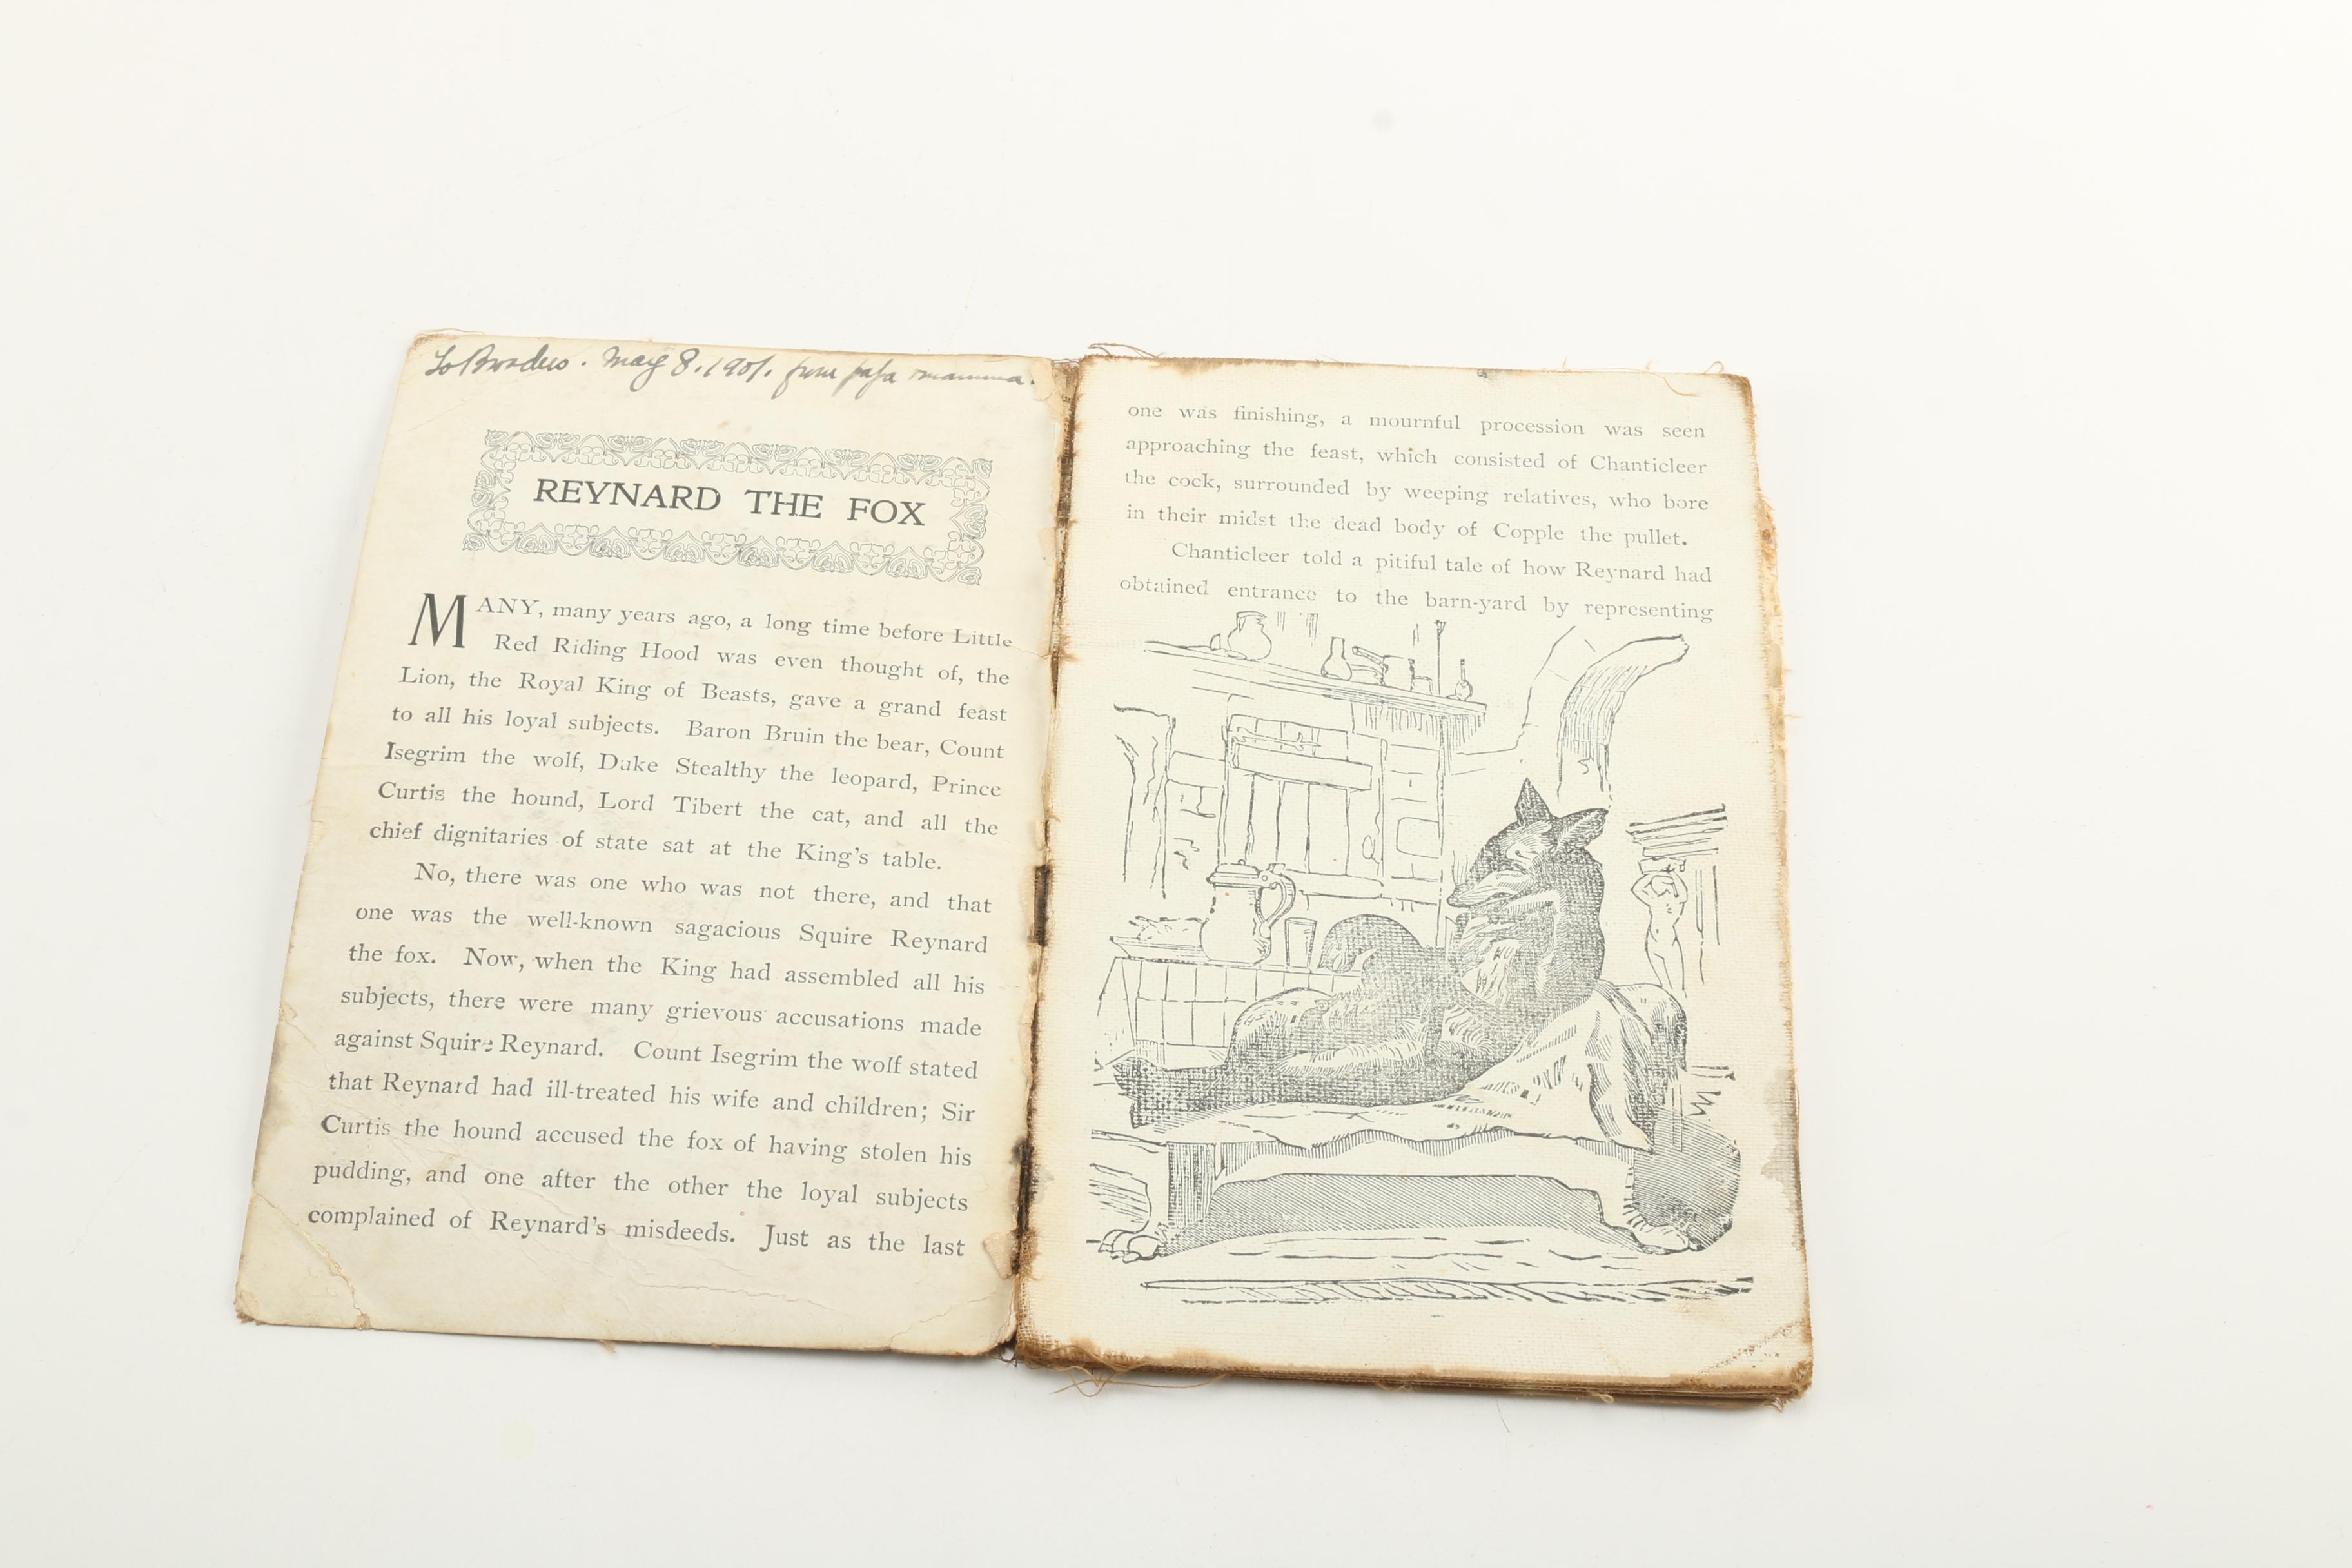 May 8. 1901. from papa mamma.
REYNARD THE FOX
MANY, many years ago, a long time before Little
Red Riding Hood was even thought of, the
Lion, the Royal King of Beasts, gave a grand feast
to all his loyal subjects. Baron Bruin the bear, Count
Isegrim the wolf, Duke Stealthy the leopard, Prince
Curtis the hound, Lord Tibert the cat, and all the
chief dignitaries of state sat at the King's table.
No, there was one who was not there, and that
one was the well-known sagacious Squire Reynard
the fox. Now, when the King had assembled all his
subjects, there were many grievous accusations made
against Squire Reynard. Count Isegrim the wolf stated
that Reynard had ill-treated his wife and children; Sir
Curtis the hound accused the fox of having stolen his
pudding, and one after the other the loyal subjects
complained of Reynard's misdeeds. Just as the last
one was finishing, a mournful procession was seen
approaching the feast, which consisted of Chanticleer
the cock, surrounded by weeping relatives, who bore
in their midst the dead body of Copple the pullet.
Chanticleer told a pitiful tale of how Reynard had
obtained entrance to the barn-yard by representing